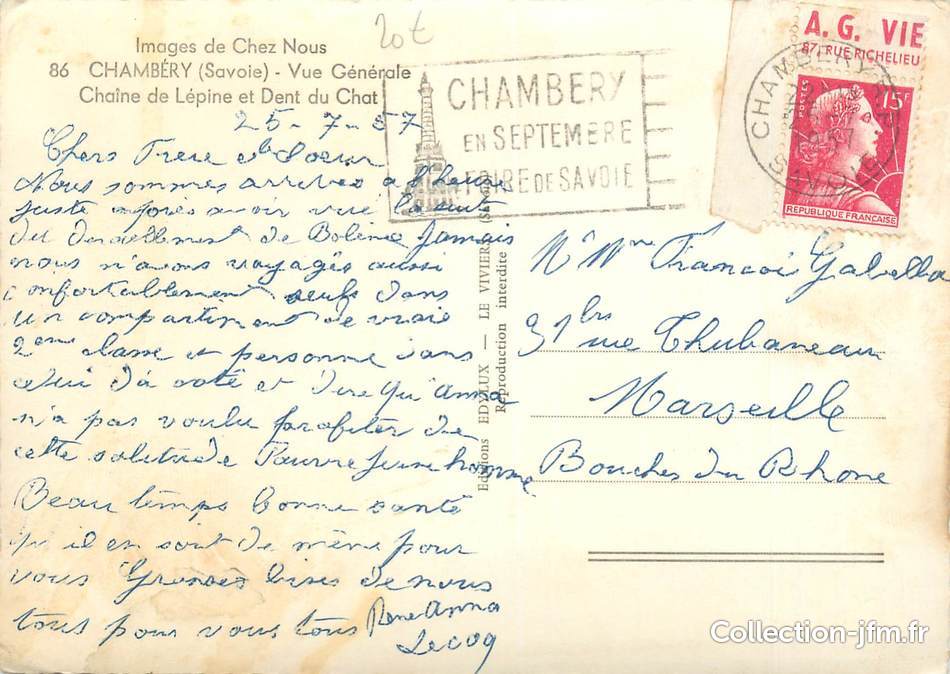 20€
Images de Chez Nous
86 CHAMBÉRY (Savoie) - Vue Générale
Chaîne de Lépine et Dent du Chat
CHAMBERY
EN SEPTEMBRE
FOIRE DE SAVOIE
A. G. VIE
87, RUE RICHELIEU
CHAMBERY
SAVOIE
POSTES
15F
REPUBLIQUE FRANÇAISE
25-7-57
Chers Frere et Soeur
Nous sommes arrivés a l'heure
juste après avoir vue
du deraillement de Bolène Jamais
nous n'avons voyagés aussi
confortablement seuls dans
un compartiment de vraie
2eme classe et personne dans
celui d'à coté et dire qu'Anna
n'a pas voulu profiter de
cette solitude Pauvre jeune homme
Beau temps bonne santé
qu'il en soit de même pour
vous Grosses bises de nous
tous pour vous tous Rene Anna
Lecoq
Editions EDYLUX — LE VIVIER
Reproduction interdite
Mr Mme Francois Gabella
31 bis rue Thubaneau
Marseille
Bouches du Rhone
Collection-jfm.fr